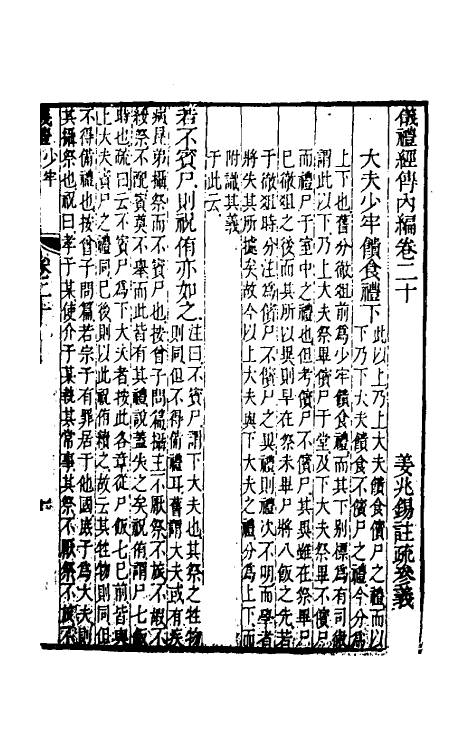 儀禮經傳內編卷二十
姜兆錫註疏參義
大夫少牢饋食禮下
此以上乃上大夫饋食儐尸之禮而以
下乃下大夫饋食不儐尸之禮今分爲
上下也舊分徹俎前爲少牢饋食禮而其下别標爲有司徹
謂此以下乃上大夫祭畢儐尸于堂及下大夫祭畢不儐尸
而禮尸于室中之禮也但考儐尸不儐尸其異雖在祭畢尸
巳徹俎之後而其所以異則早在祭未畢尸將八飯之先若
于徹俎時分注爲儐尸不儐尸之異禮則禮次不明而學者
將失其所據矣故今以上大夫與下大夫之禮分爲上下而
附識其義
于此云
若不賓尸則祝侑亦如之
注曰不賓尸謂下大夫也其祭之牲物
則同但不得備禮耳舊謂大夫或有疾
病昆弟攝祭而不賓尸也按曾子問篇攝主不厭祭不旅不嘏不
綏祭不配賓奠不舉而此皆有其禮說蓋失之矣祝侑謂尸七飯
時也疏曰云不賓尸爲下大夫者按此各章從尸飯七巳前皆與
上大夫賓尸之禮同巳後則以此祝侑續之故云其牲物則同但
不得備禮也按曾子問篇若宗子有罪居于他國庶子爲大夫則
其攝祭也祝曰孝子某使介子某薦其常事其祭不厭祭不旅不
儀禮 少牢
卷二十